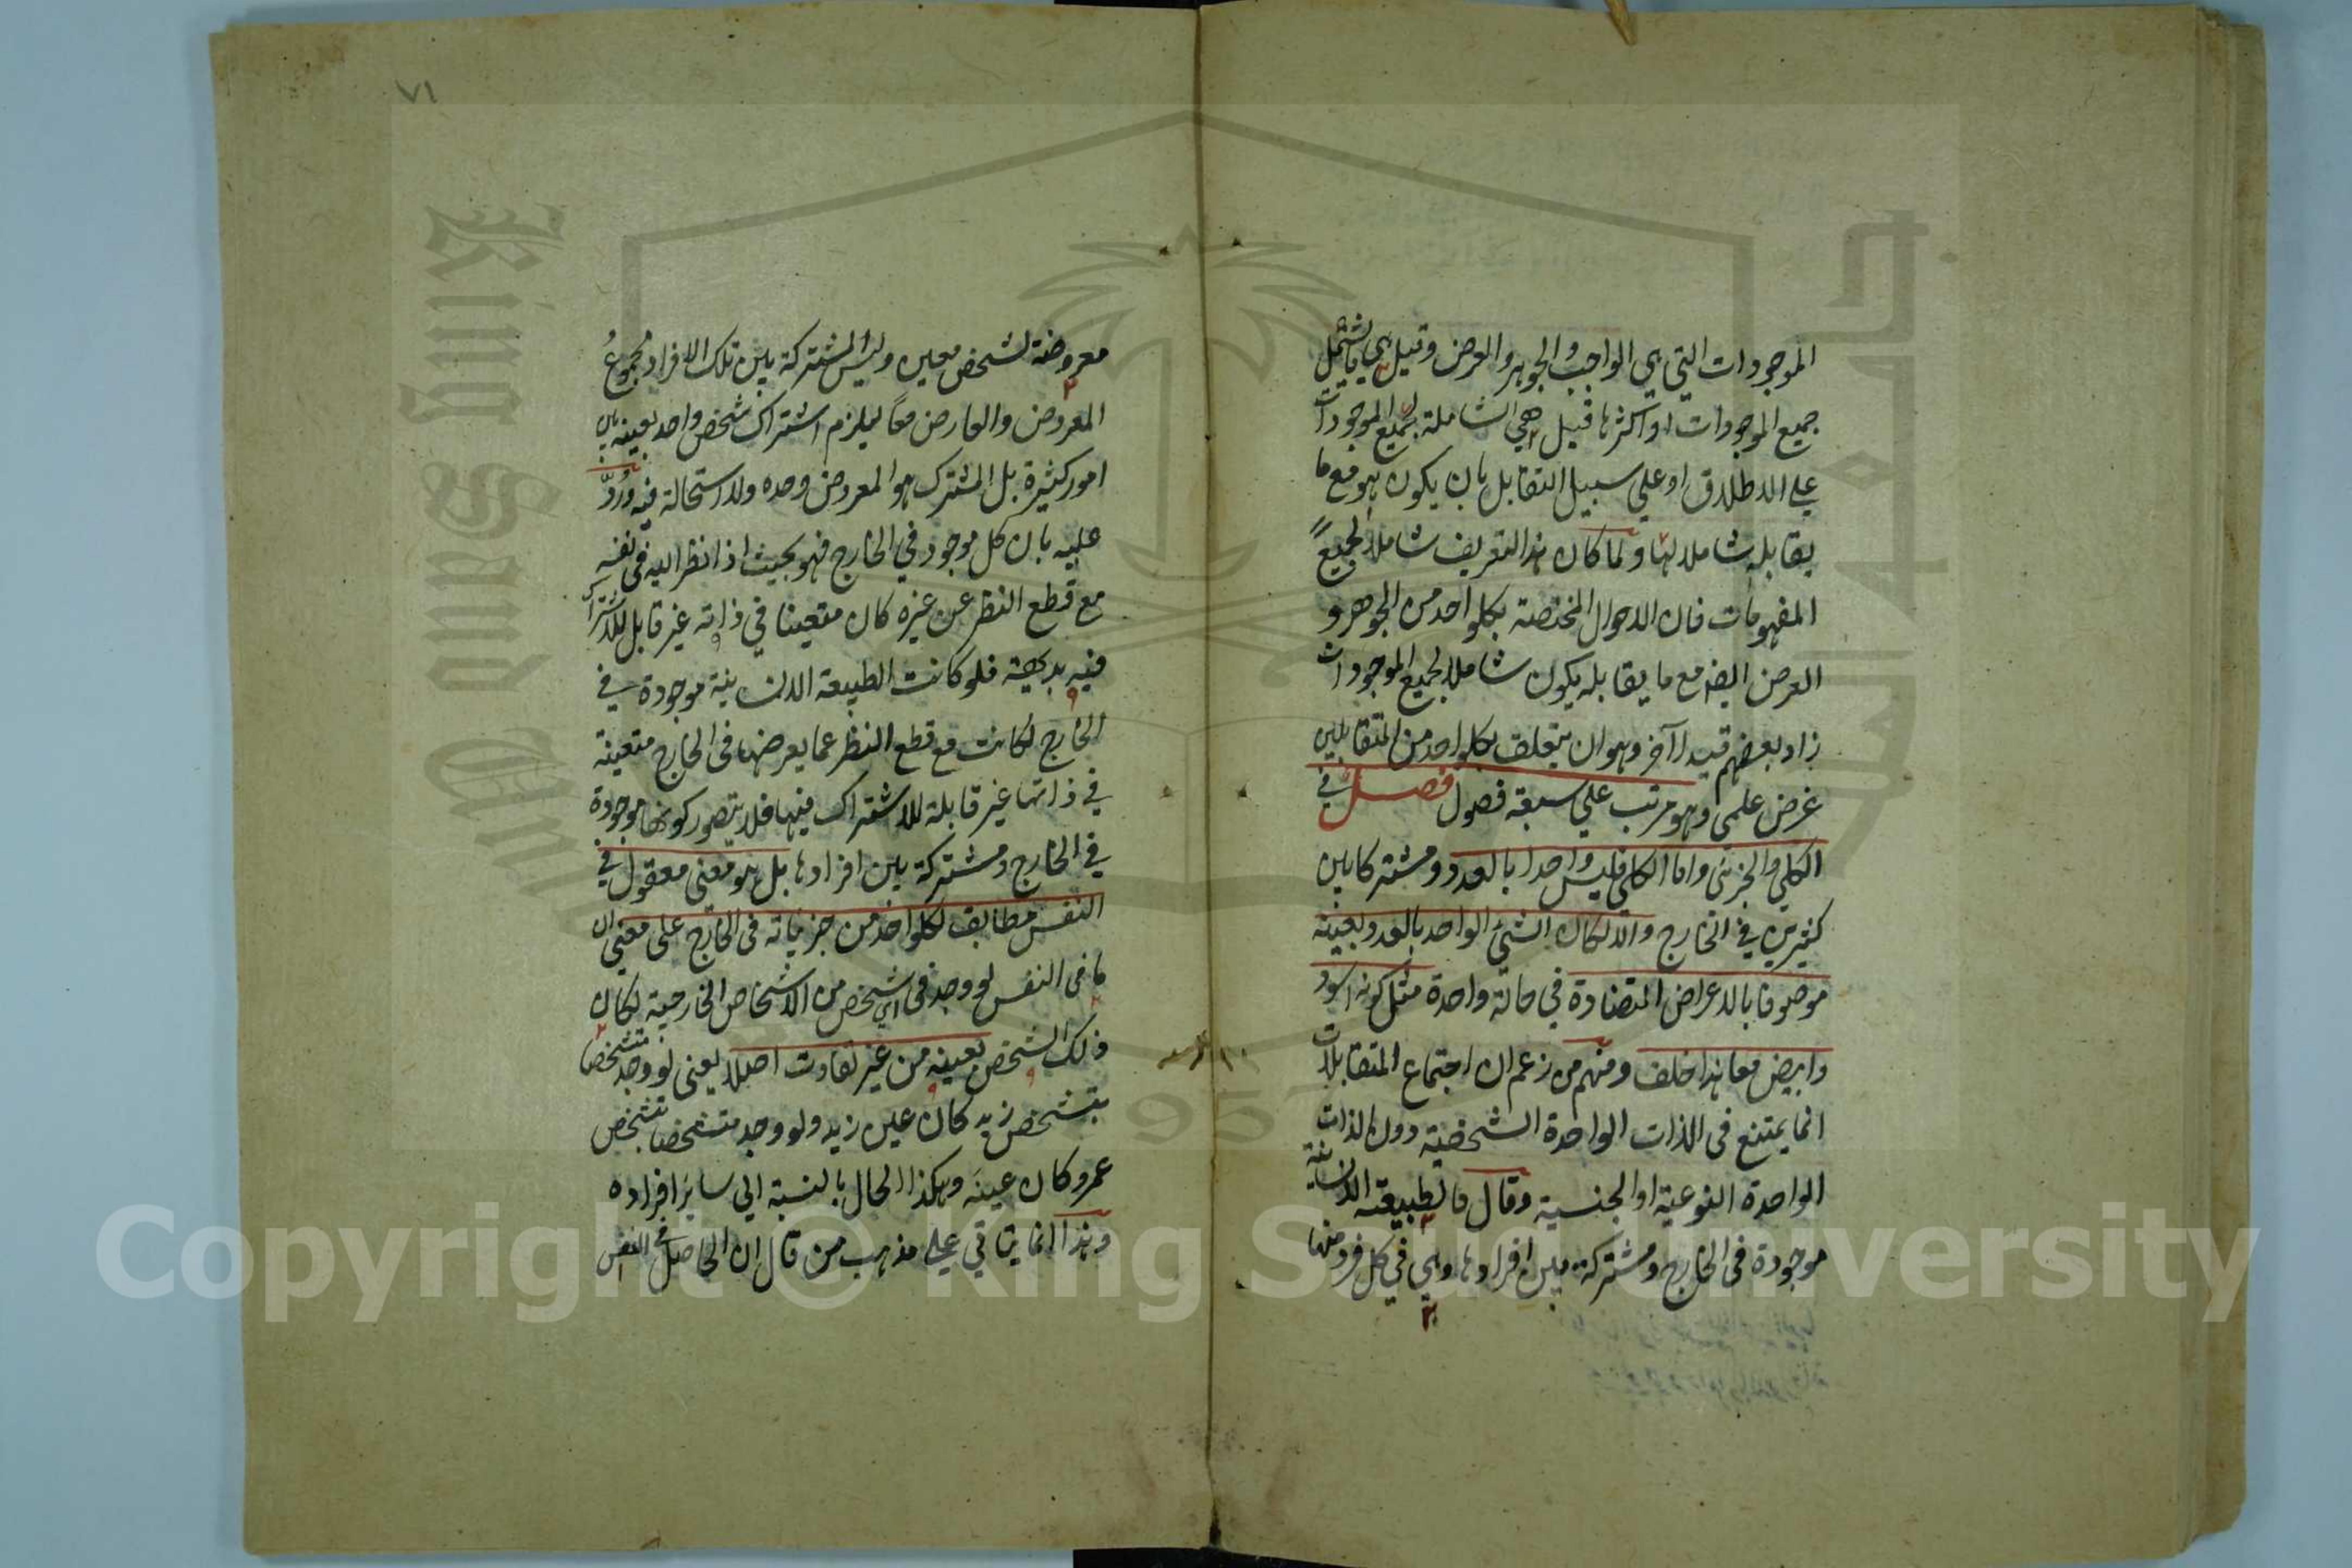 الموجودات التي هي الواجب والجوهر والعرض وقيل هي ما يشمل
جميع الموجودات او اكثرها قيل هي الشاملة لجميع الموجودات
علي الاطلاق او علي سبيل التقابل بان يكون هو مع ما
يقابله شاملا لها ولما كان هذا التعريف شاملا لجميع
المفهومات فان الاحوال المختصة بكل واحد من الجوهر و
العرض ايضا مع ما يقابله يكون شاملا لجميع الموجودات
زاد بعضهم قيدا آخر وهو ان يتعلق بكل واحد من المتقابلين
غرض علمي وهو مرتب علي سبعة فصول فصل في
الكلي والجزئي واما الكلي فليس واحدا بالعدد ومشتركا بين
كثيرين في الخارج والا لكان الشئ الواحد بالعدد بعينه
موصوفا بالاعراض المتضادة في حالة واحدة مثل كونه اسود
وابيض معا هذا خلف ومنهم من زعم ان اجتماع المتقابلات
انما يمتنع فى الذات الواحدة الشخصية دون الذات
الواحدة النوعية او الجنسية وقال فالطبيعة الانسانية
موجودة فى الخارج ومشتركة بين افرادها وهي في كل فرد منها
٧١
معروضة لشخص معين وليس المشتركة بين تلك الافراد مجموعُ
المعروض والعارض معًا ليلزم اشتراك شخص واحد بعينه بين
امور كثيرة بل المشترك هو المعروض وحده ولا استحالة فيه ورُدّ
عليه بان كل موجود في الخارج فهو بحيث اذا نظر اليه فى نفسه
مع قطع النظر عن غيره كان متعينا في ذاته غير قابل للاشتراك
فيه بديهة فلو كانت الطبيعة الانسانية موجودة في
الخارج لكانت مع قطع النظر عما يعرضها فى الخارج متعينة
في ذاتها غير قابلة للاشتراك فيها فلا يتصور كونها موجودة
في الخارج ومشتركة بين افرادها بل هو معنى معقول في
النفس مطابق لكل واحد من جزئياته فى الخارج على معنى ان
ما فى النفس لو وجد فى اي شخص من الاشخاص الخارجية لكان
ذلك الشخص بعينه من غير تفاوت اصلا يعنى لو وجد متشخصا
بتشخص زيد كان عين زيد ولو وجد متشخصا بتشخص
عمرو كان عينَه وهكذا الحال بالنسبة الي سائر افراده
وهذا انما يتاتي علي مذهب من قال ان الحاصل في النفس
Copyright © King Saud University